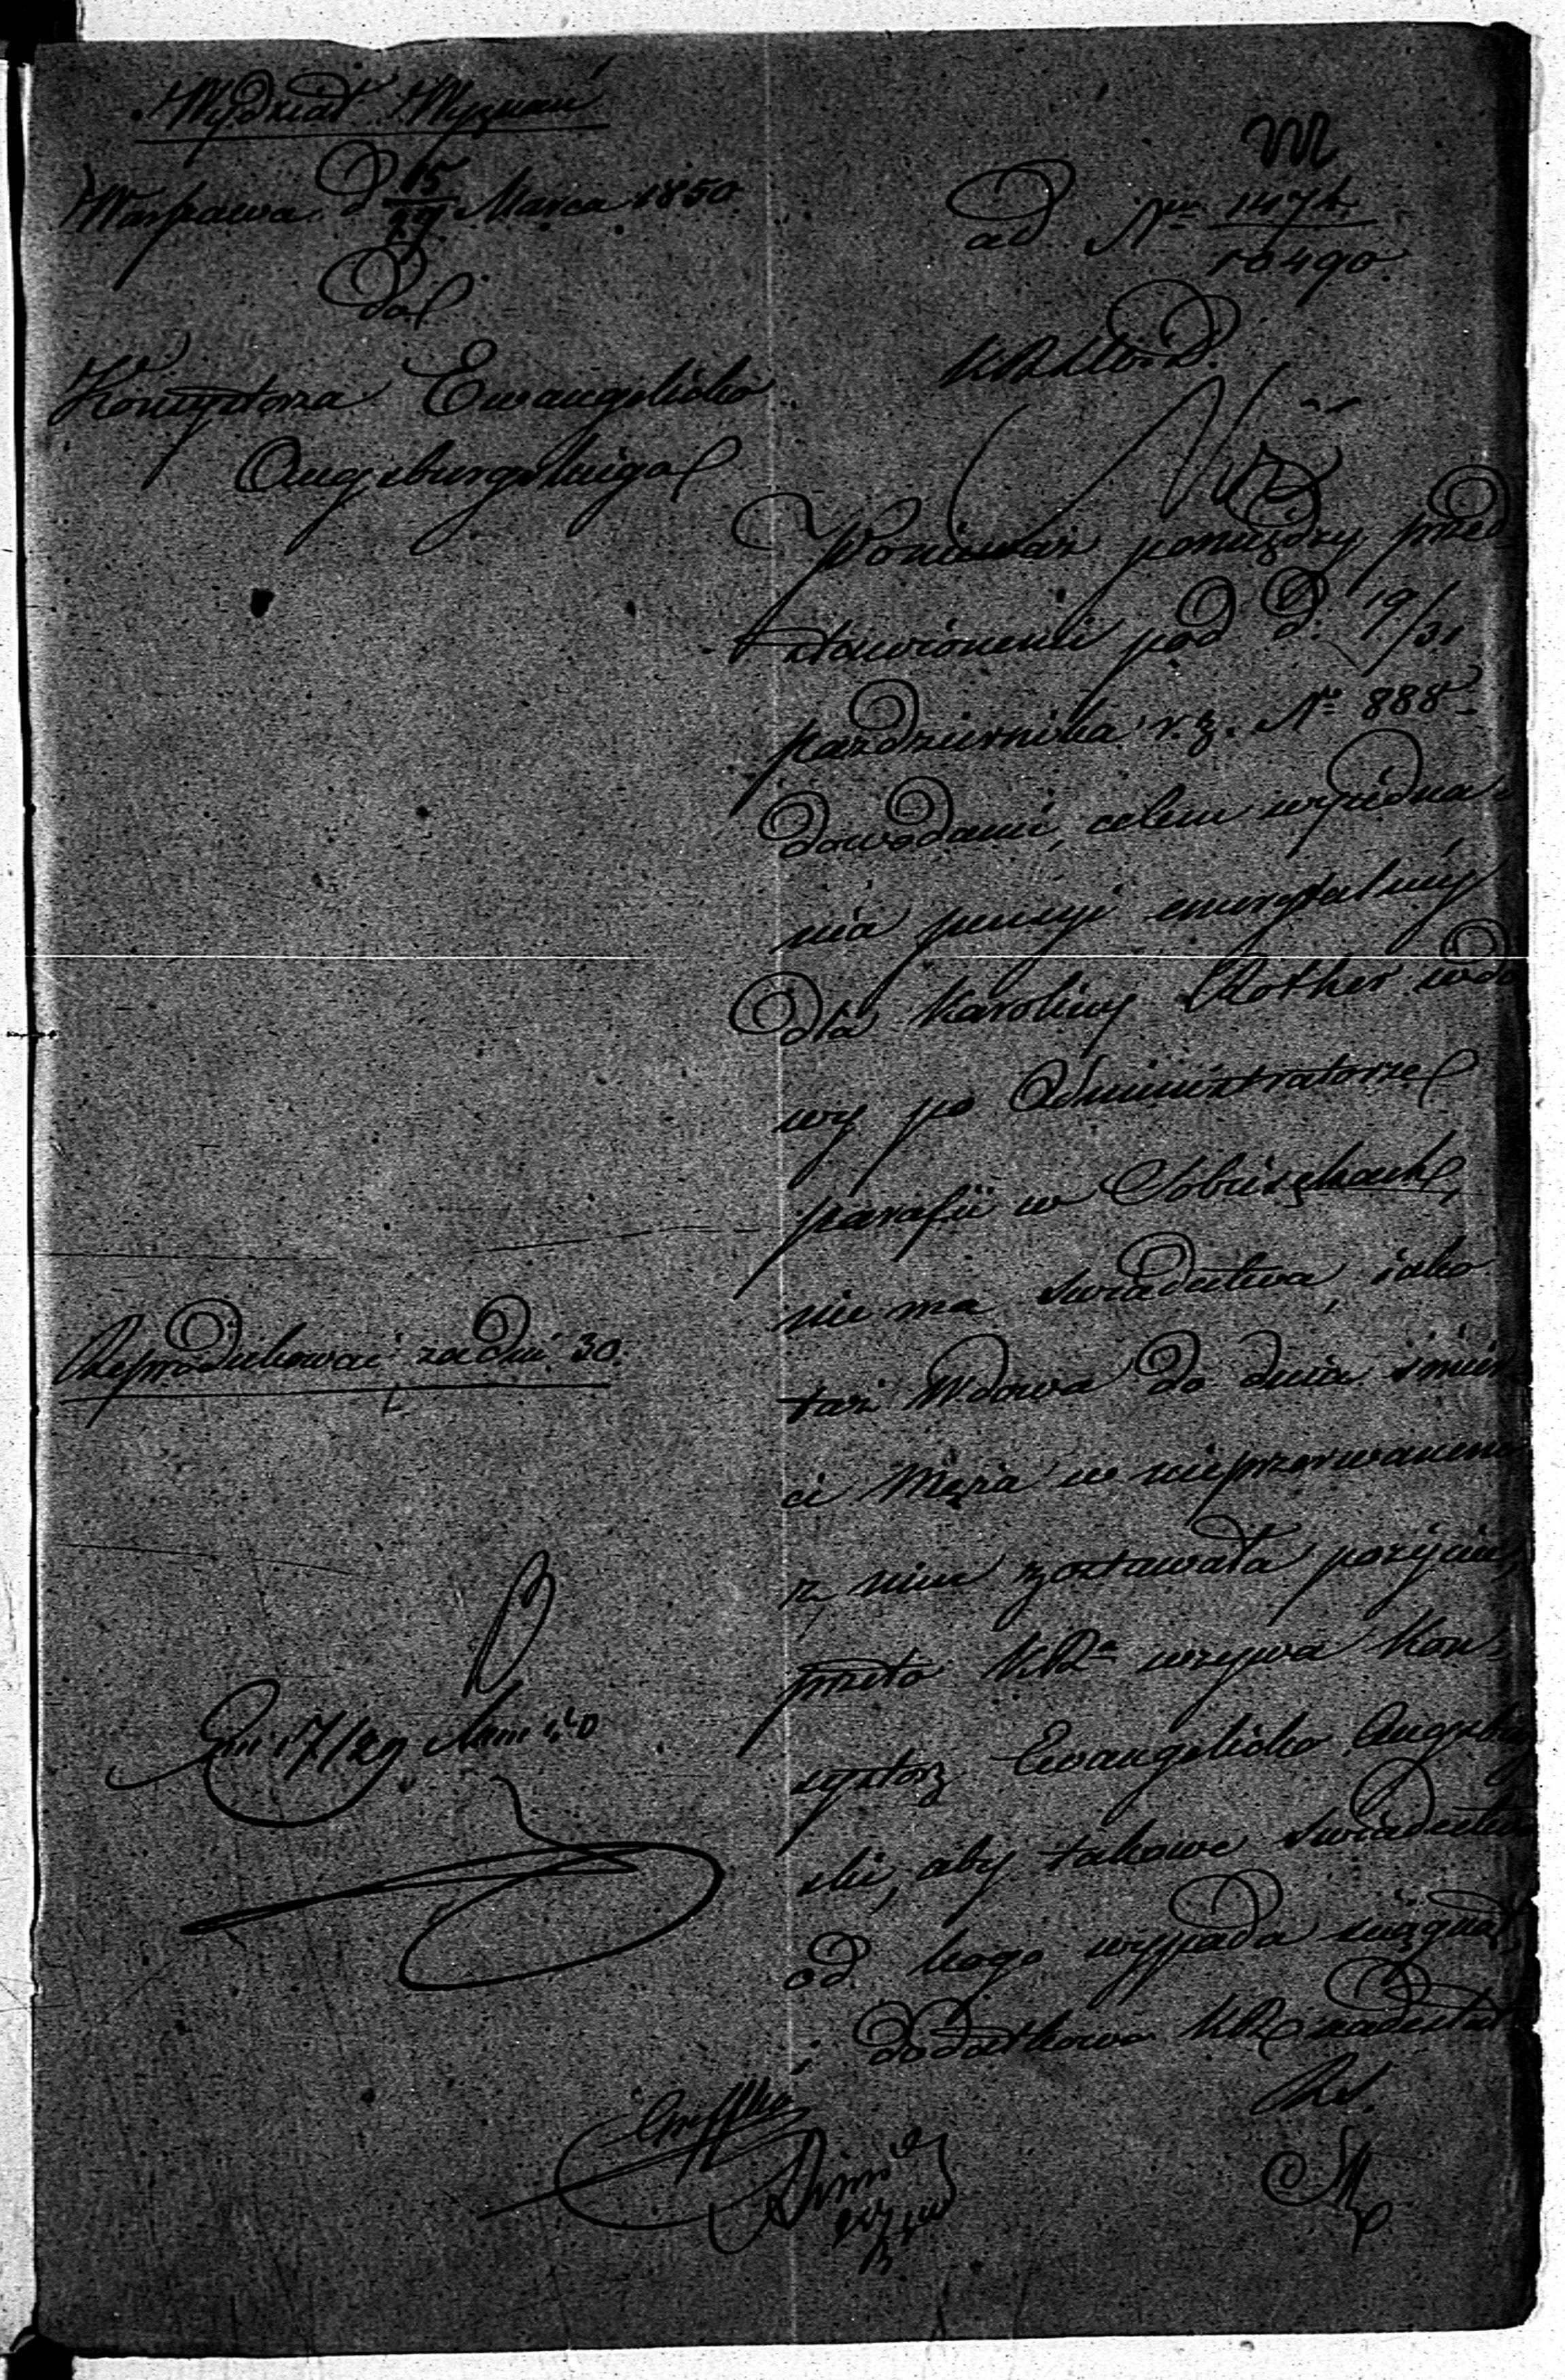 Wydział Wyznań
Warszawa d 15/27 Marca 1850
Do
Konsystorza Ewangelicko
Augsburgskiego
ad Nr 1474
10490.
Ponieważ pomiędzy przed
stawionemi pod d. 19/31
października r. z. No 888
dowodami, celem wyjedna
nia pensyi emerytalnéj
dla Karoliny Rother wdo
wy po Administratorze
parafii w Sobieskach,
nie ma świadectwa, iako
taż Wdowa do dnia śmier
ci Męża w nieprzerwanem
z nim zostawała pożyciu,
przeto KR wzywa Kon
systorz Ewangelicko Augsburg
ski, aby takowe świadectwo
od kogo wypada ściągnął,
i dodatkowo KR nadesłał
Reprodukować za dni 30.